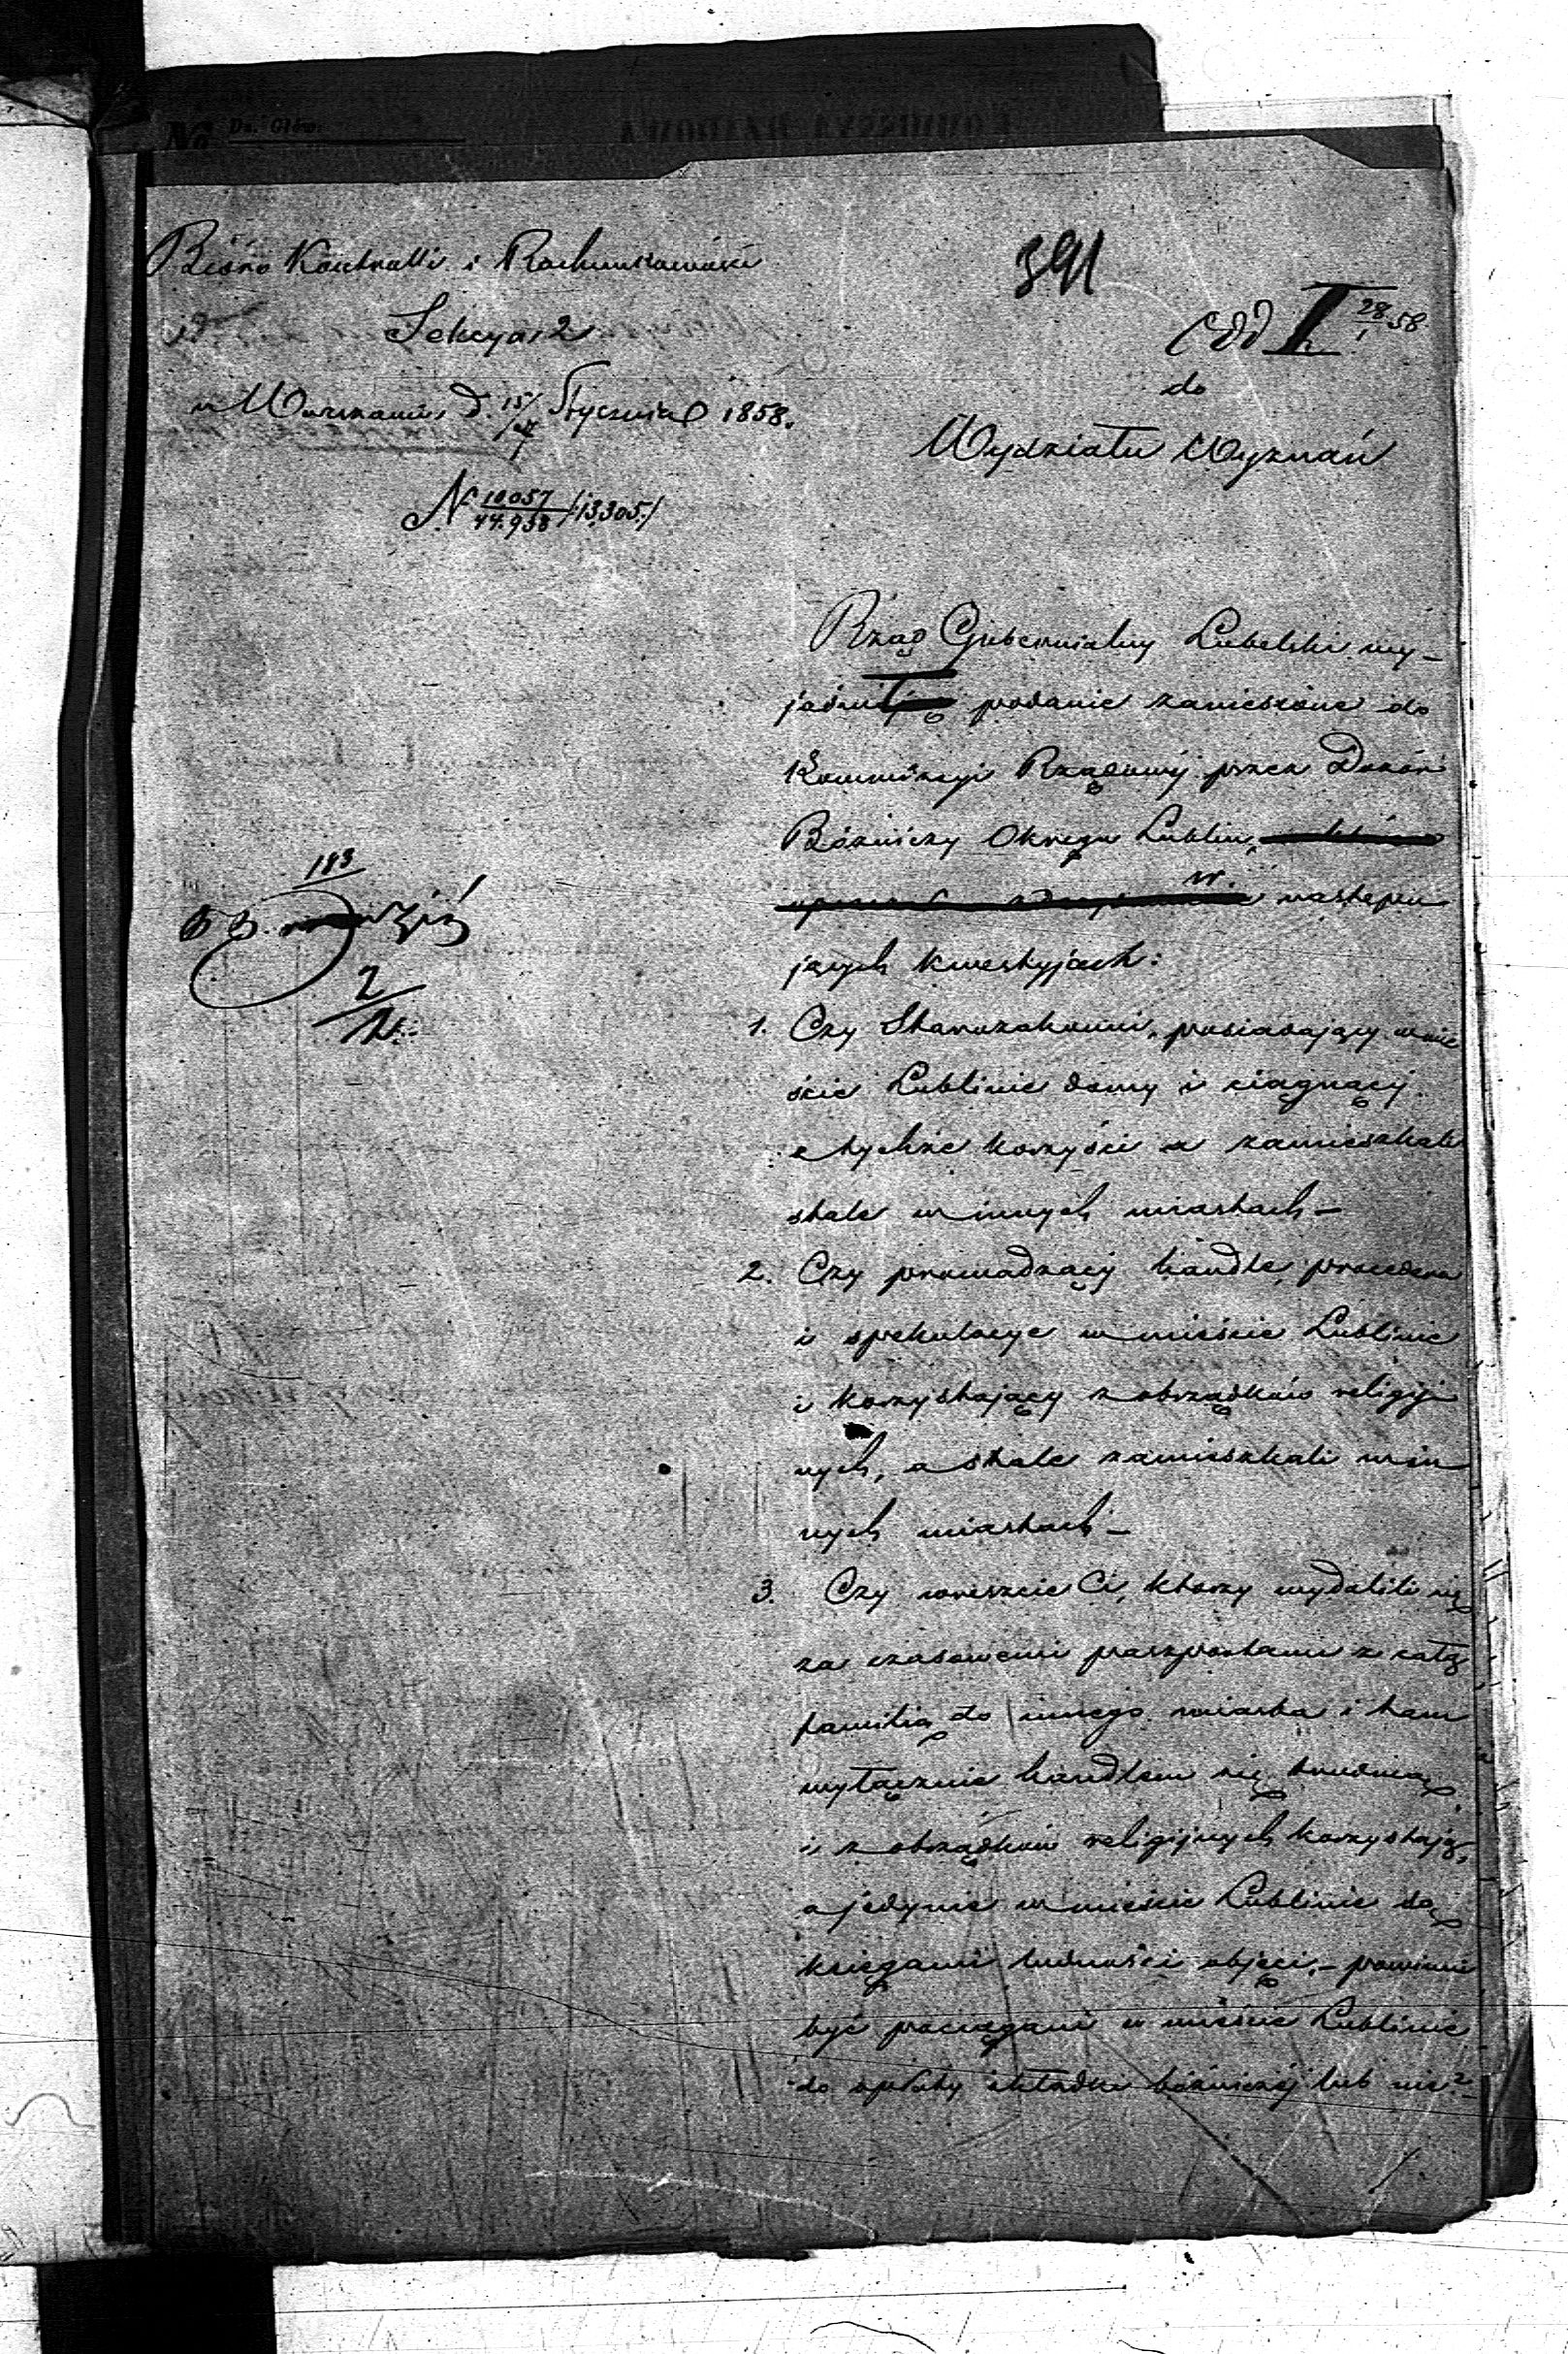 Bióro Kontrolli i Rachunkowości
Sekcya 2
w Warszawie d. 15/27 Stycznia 1858.
N. 10057/44.938 /13,305./
391
Odd I 28/1 58
do
Wydziału Wyznań
Rząd Gubernialny Lubelski wy-
jaśnił podanie zaniesione do
Kommissyi Rządowej przez Dozór
Bóżniczy Okręgu Lublin,
w. następu
jących kwestyjach:
1. Czy Starozakonni, posiadający w mie
ście Lublinie domy i ciągnący
z tychże korzyści a zamieszkali
stale w innych miastach –
2. Czy prowadzący handle, procedera
i spekulacye w mieście Lublinie
i korzystający z obrządków religij
nych, a stale zamieszkali w in
nych miastach –
3. Czy wreszcie Ci, którzy wydalili się
za czasowemi paszportami z całą
familią do innego miasta i tam
wyłącznie handlem się trudnią
i z obrządków religijnych korzystają,
a jedynie w mieście Lublinie są
księgami ludności objęci, – powinni
być pociągani w mieście Lublinie
do opłaty składki bóżniczéj lub nie?–
183
2